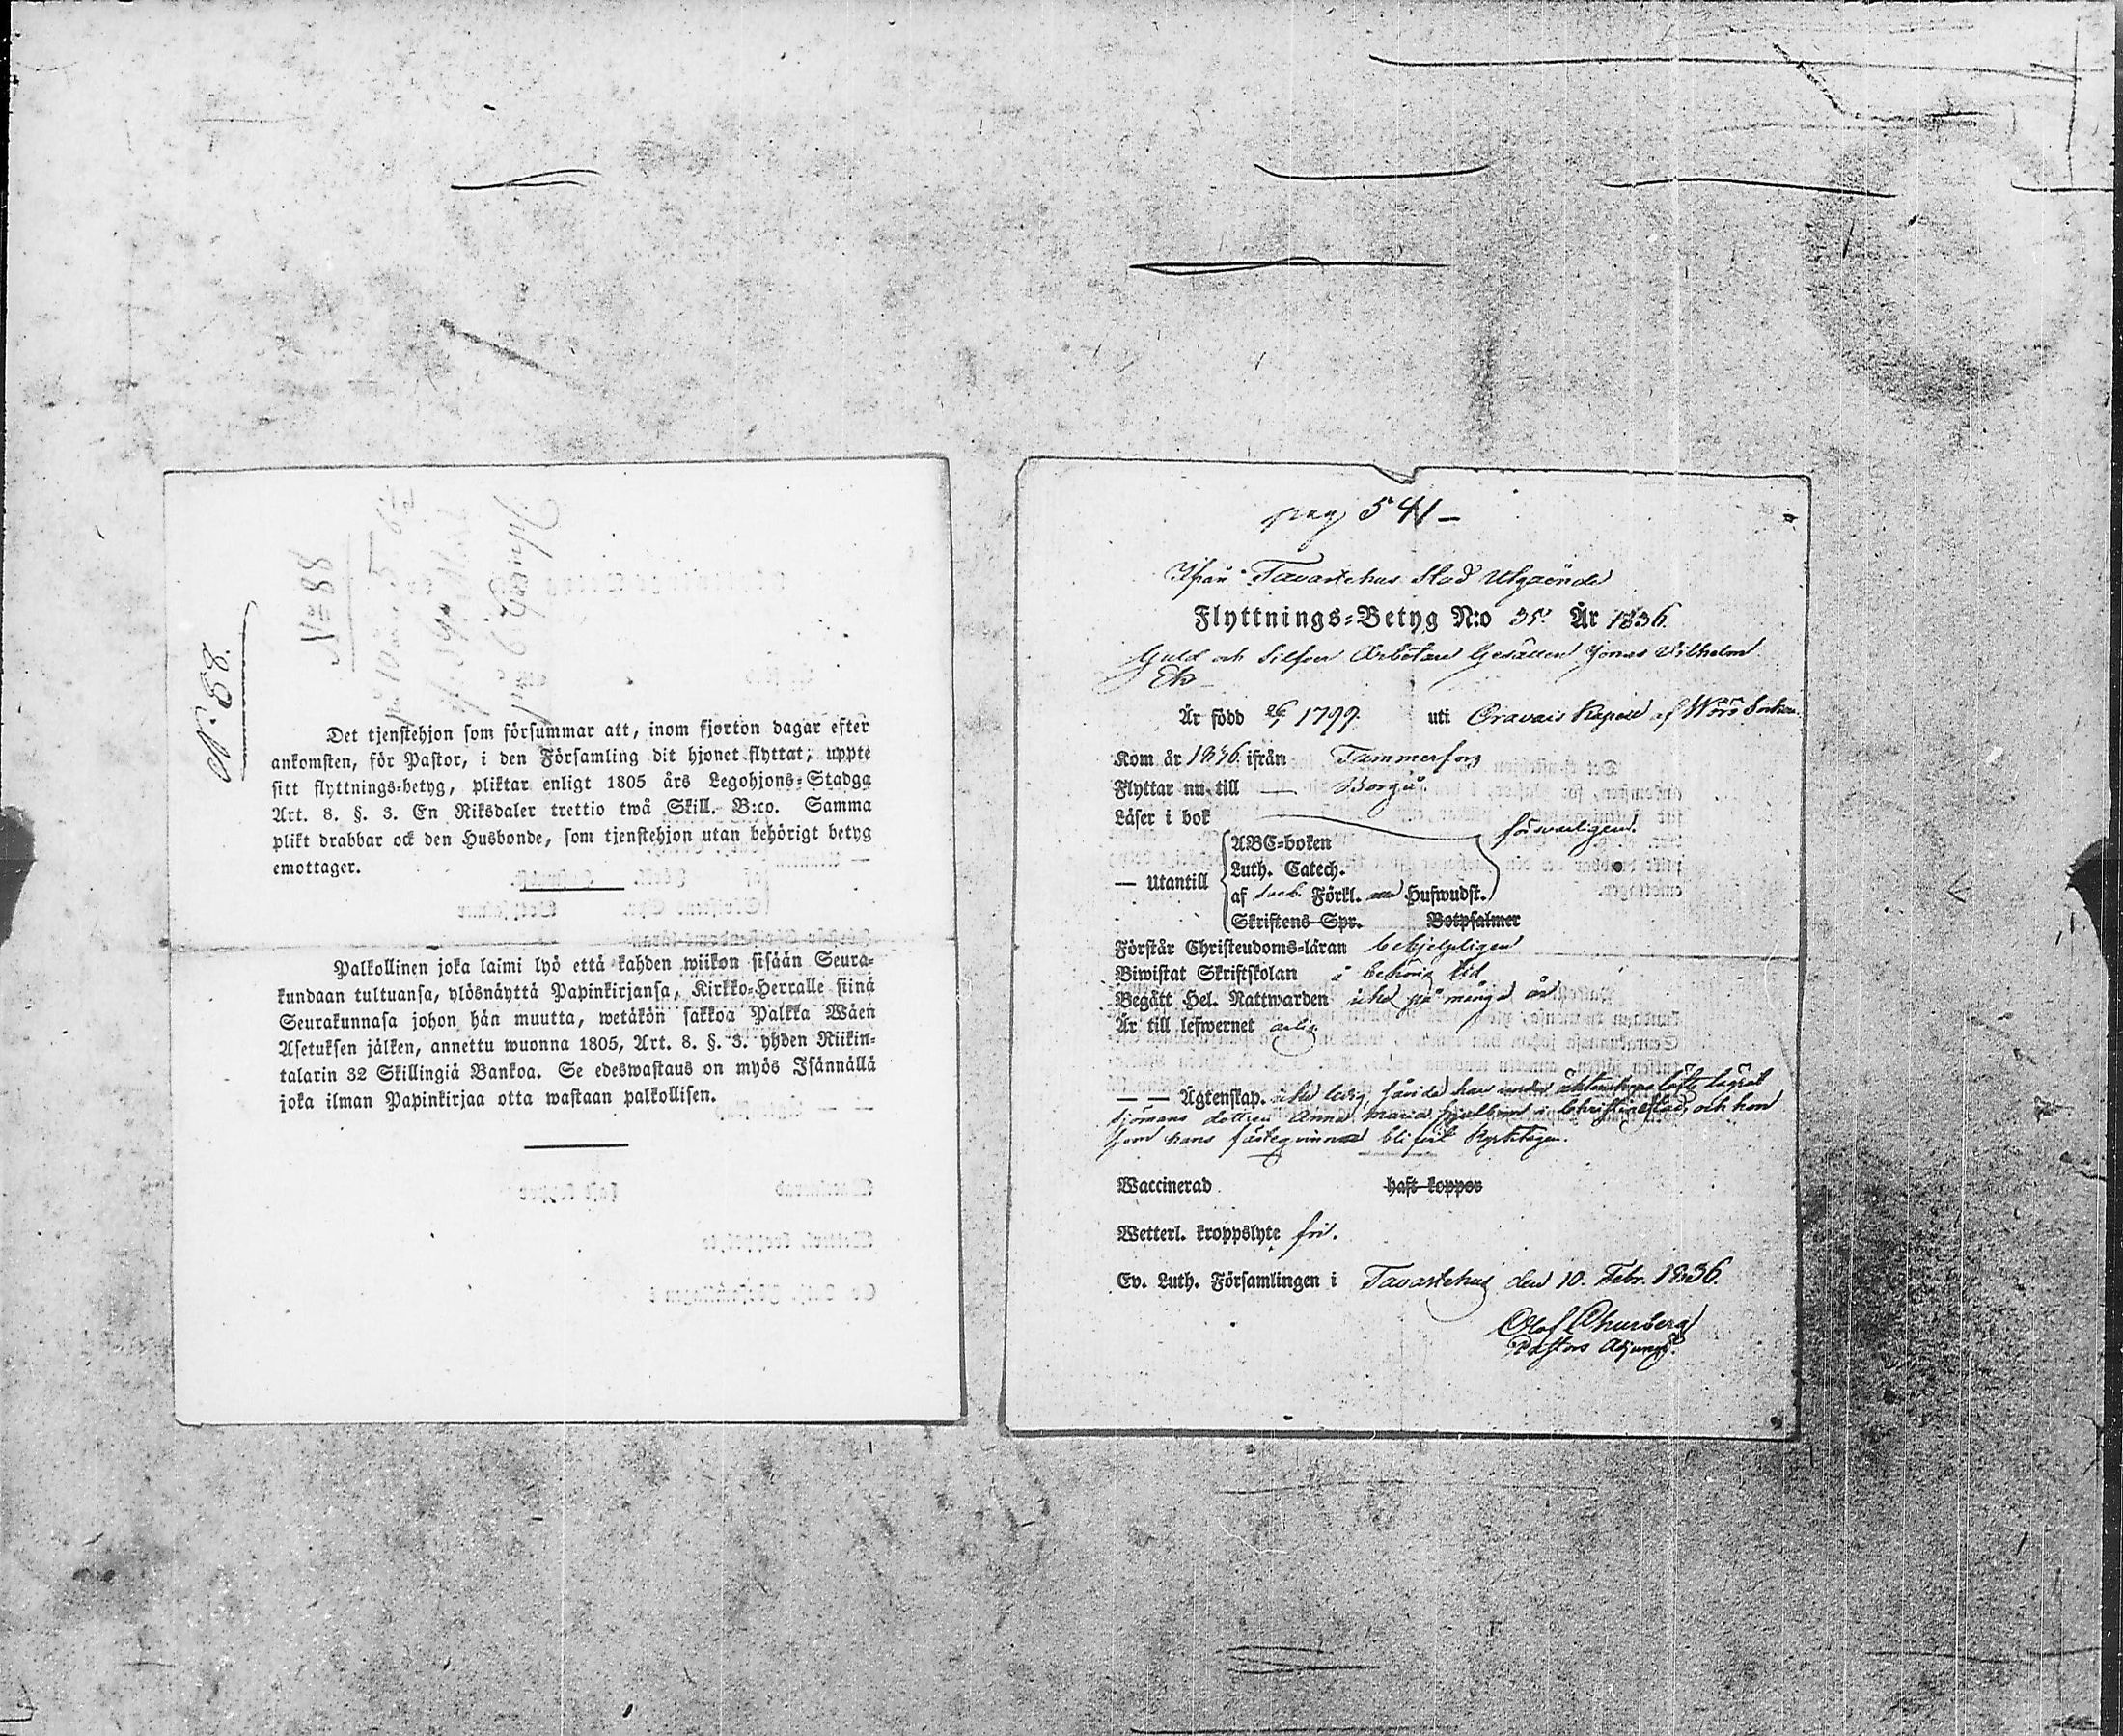 N. 88.
N= 88
Det tjenstehjon som försummar att, inom fjorton dagar efter
ankomsten, för Pastor, i den Församling dit hjonet flyttat, uppte
sitt flyttnings-betyg, pliktar enligt 1805 års Legohjons-Stadga
Art. 8. §. 3. En Riksdaler trettio twå Skill. B:co. Samma
plikt drabbar ock den Husbonde, som tjenstehjon utan behörigt betyg
emottager.
Palkollinen joka laimi lyö että kahden wiikon sisään Seura-
kundaan tultuansa, ylösnäyttä Papinkirjansa, Kirkko-Herralle siinä
Seurakunnasa johon hän muutta, wetäkön sakkoa Palkka Wäen
Asetuksen jälken, annettu wuonna 1805, Art. 8. §. 3. yhden Riikin-
talarin 32 Skillingiä Bankoa. Se edeswastaus on myös Isännällä
joka ilman Papinkirjaa otta wastaan palkollisen.
pag 541-
Ifrån Tavastehus Stad Utgående
Flyttnings-Betyg N:o 35. År 1836.
Guld och Silfver Arbetare Gesällen Jonas Vilhelm
Ek
Är född 26/ 1799. uti Oravais Kapell af Wörå Sochn.
Kom år ifrån Tammerfors
Flyttar nu till — Borgå
Läser i bok försvarligen.
— Utantill
ABC-boken
Luth. Catech.
af Förkl. Hufwudst.
Skriftens Spr. Botpsalmer
Förstår Christendoms-läran behjelpligen
Biwistat Skriftskolan i behörig tid
Begått Hel. Nattwarden icke på många år
Är till lefwernet ärlig
— — Ägtenskap. icke ledig, han under äktenskaps löfte lägrat
sjömans dottren Anna Maria i Christinestad, och hon
som hans fästeqvinna blifvit kyrktagen.
Waccinerad haft koppor
Wetterl. kroppslyte fri.
Ev. Luth. Församlingen i Tavastehus den 10. Febr. 1836.
Olof Churberg
Pastors Adjunct.